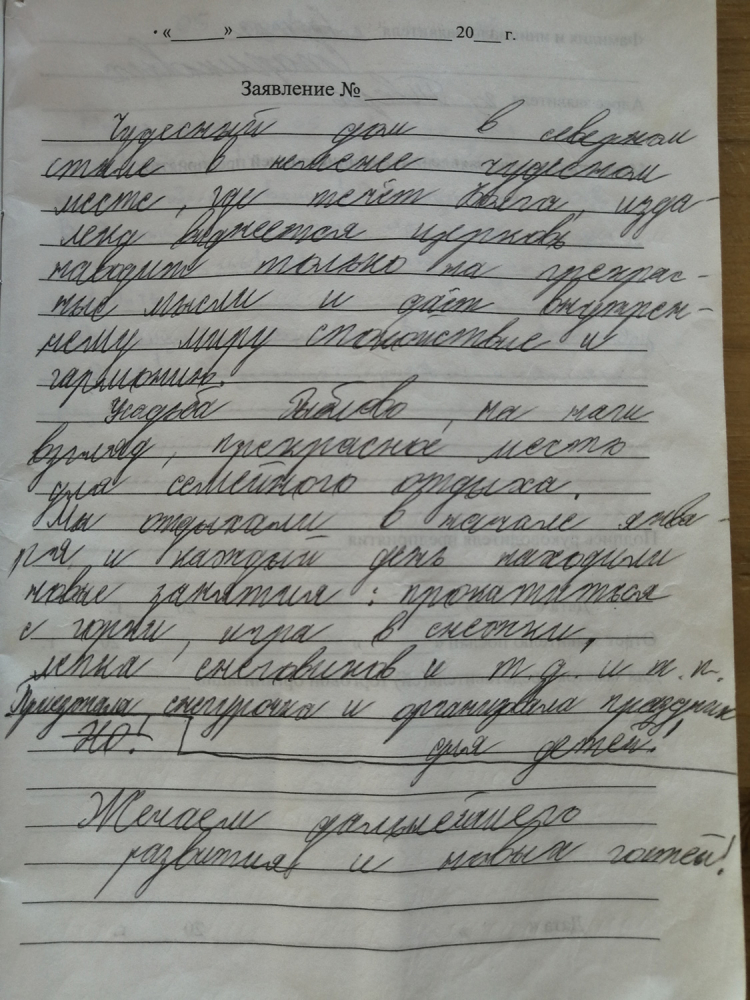 «____» ____________ 20__ г.
Заявление № ______
Чудесный дом в северном
стиле в неменее чудесном
месте, где течёт Волга, изда-
лека виднеется церковь
наводит только на прекрас-
ные мысли и даёт внутрен-
нему миру спокойствие и
гармонию.
Усадьба Яблово, на наш
взгляд, прекрасное место
для семейного отдыха.
Мы отдыхали в начале янва-
ря и каждый день находили
новые занятия: прокатиться
с горки, игра в снежки,
лепка снеговиков и т.д. и т.п.
Приезжала снегурочка и организовала праздник
Но! для детей!
Желаем дальнейшего
развития и новых гостей!